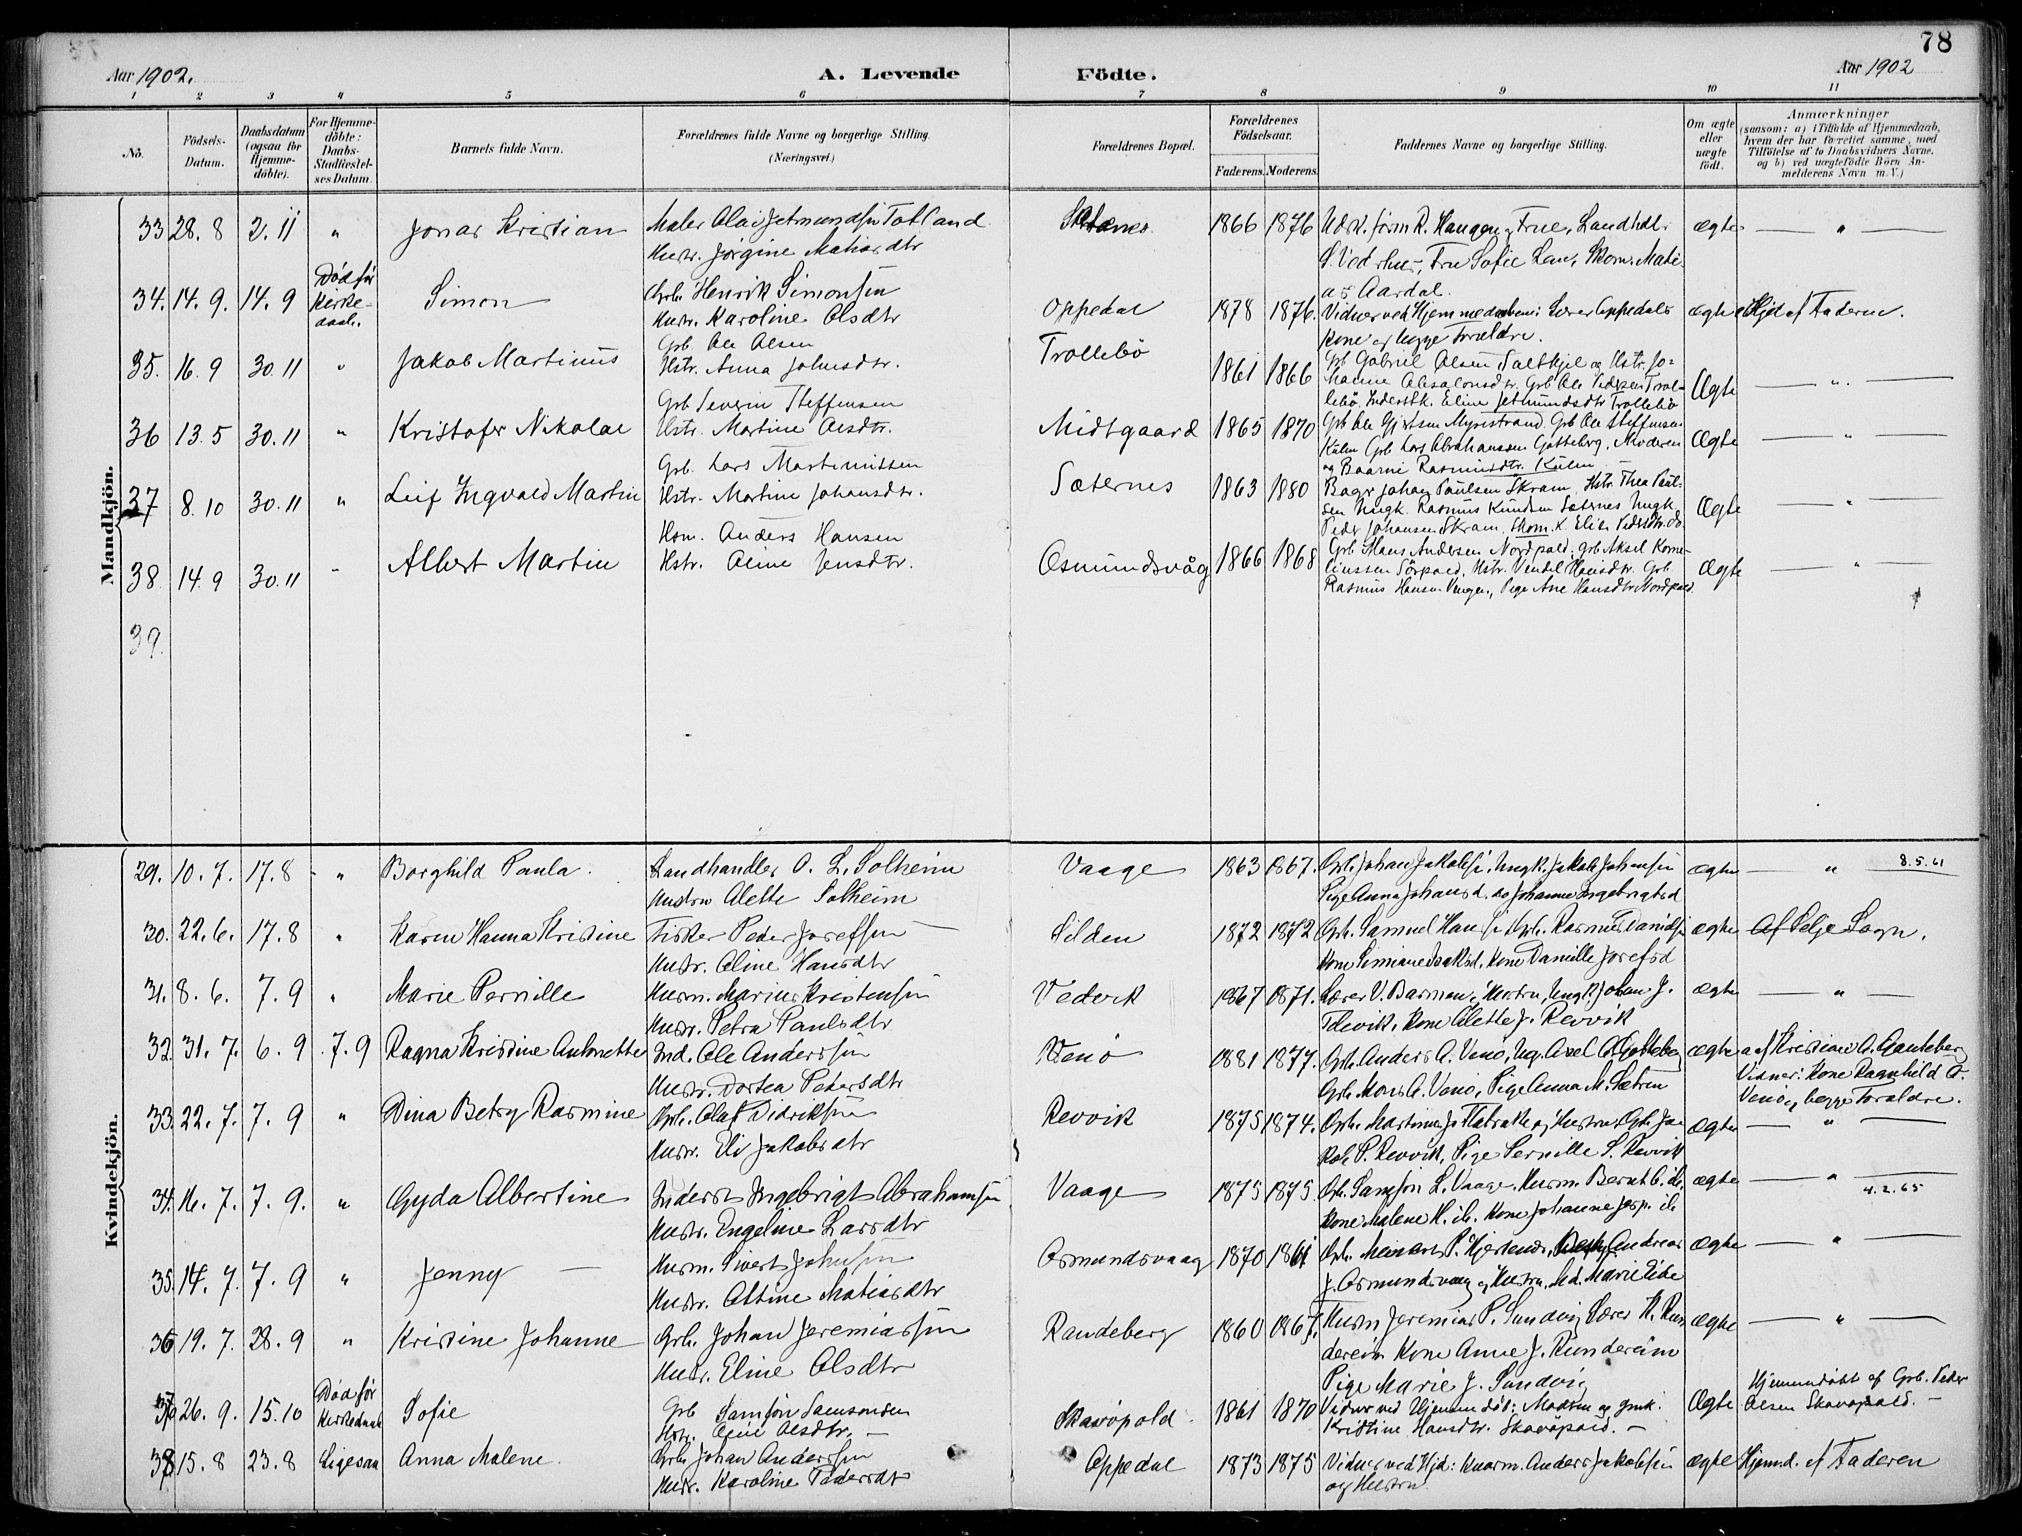 78
Aar 1902.
A. Levende Födte.
Aar 1902
1 2 3 4 5 6 7 8 9 10 11
No.
Födsels-Datum.
Daabsdatum (ogsaa for Hjemme-döbte).
For Hjemme-döbte: Daabs-Stadfæstel-ses Datum.
Barnets fulde Navn.
Forældrenes fulde Navne og borgerlige Stilling.
(Næringsvei.)
Forældrenes Bopæl.
Forældrenes Födselsaar.
Faderens. Moderens.
Faddernes Navne og borgerlige Stilling.
Om ægte eller uægte födt.
Anmærkninger
(saasom: a) i Tilfælde af Hjemmedaab, hvem der har forrettet samme, med Tilföielse af to Daabsvidners Navne, og b) ved uægtefödte Börn An-melderens Navn m. V.)
Mandkjön.
33 28. 8 2. 11 " Jonas Kristian
Maler Olai Jetmundsen Totland
Hustr. Jørgine Matiasdtr
1866 1876
Haugen, Frue, Landhdl.
Fru Sofie
as Aardal.
ægte — " —
34. 14. 9. 14. 9 Död før Kirke-daab. Simon
Grbr. Henrik Simonsen
Hustr. Karoline Olsdtr
Oppedal 1878 1876.
Vidner ved Hjemmedaaben: Lærer Oppedals
Kone og begge Forældre.
ægte Hjd af Faderen.
35. 16. 9 30. 11 " Jakob Martinus
Grb Ole Olsen
Hstr. Anna Johnsdtr.
Trollebö 1861 1866
Grb Gabriel Olsen Saltkjel og Hstr. Jo-
hanne Absalonsdtr. Grb Ole Pedersen Trol-
lebö. Eline Jetmundsdtr Trollebö
Ægte — " —
36 13. 5 30. 11 " Kristofer Nikolai
Grb Severin Steffensen
Hstr. Martine Olsdtr.
Midtgaard 1865 1870
Grb Ole Gjertsen Myrestrand. Grb Ole Steffensen
Kulen Grb Lars Abrahamssen Gotteberg. Moderen
Rasmusdtr. Kulen
Ægte — " —
37 8. 10 30. 11 " Leif Ingvald Martin
Grb. Lars Martinussen
Hstr. Martine Johansdtr.
Sæternes 1863 1880
Bagr Johan Paulsen Skram, Hstr. Thea Paul-
sen Ungk. Rasmus Knudsen Sæternes Ungk.
Peder Johansen Skram.
Ægte — " —
38. 14. 9 30. 11 " Albert Martin
Hsm. Anders Hansen
Hstr. Oline Jensdtr.
Osmundsvåg 1866 1868
Grb Hans Andersen Nordpold, grb Aksel Korne-
liussen Sörpold, Hstr. Vendel Hansdtr. Grb
Rasmus Hansen Vengen, Pige Ane Hansdtr Nordpold
Ægte — " —
39.
Kvindekjön.
29. 10. 7. 17. 8 " Borghild Paula.
Landhandler O. L. Solheim
Hustru Alette Solheim
Vaage 1863 1867.
Grb. Johan Jakobsen, Ungk. Jakob Johansen
Pige Anna Johansd. og Johanne Ingebrigtsd
ægte — " — 8.5.61
30. 22. 6. 17. 8 " Karen Hanna Kristine
Fisker Peder Josefsen
Hustr. Oline Hansdtr
Silden 1872 1872
Grb. Samuel Hansen, Grb. Rasmus Danielsen
Kone Daniille Josefsd
ægte Af Selje Sogn.
31. 8. 6. 7. 9 " Marie Pernille
Husm. Marius Kristensen
Hustr. Petra Paulsdtr
Vedvik 1867 1871.
Lærer V. Barmen, Hustru, Ungk. Johan J.
Kone Alette J. Revvik
ægte — " —
32. 31. 7. 6. 9 7. 9 Ragna Kristine Antonette
Ind. Ole Anderssen
Hustr. Dortea Pedersdtr
Venö 1881 1877.
Grb. Anders A. Venö, Ug. Axel O. Gotteberg
Grb. Mons A. Venö, Pige Anna M. Sætren
ægte af Kristiane A. Gauteberg
Vidner: Kone Ragnhild A.
Venö og begge Forældre.
33. 22. 7. 7. 9 " Dina Betzy Rasmine
Grb. Olaf Didriksen
Hustr. Eli Jakobsdtr
Revvik 1875 1874.
Grb. Martinus J. Flatrakke og Hustru, Grb. Ja-
kob P. Revvik, Pige Pernille S. Revvik
ægte — " —
34. 16. 7. 7. 9. " Gyda Albertine
Inderst Ingebrigt Abrahamsen
Hustr. Engeline Larsdtr
Vaage 1875 1875
Grb. Samson L. Vaage, Husm. Bernt O. ib.
Kone Malene H. ib. Kone Johanne Jesp. ib
ægte — " — 4.2.65
35. 14. 7. 7. 9 " Jenny —
Husm. Sivert Johnsen
Hustr. Oltine Matiasdtr
Osmundsvaag 1870 1861
Grb. Meinert P. Hjertenes, Andreas
J. Osmundsvaag og Hustru, Md. Marie Eide
ægte — " —
36 19. 7. 28. 9 " Kristine Johanne
Grb. Johan Jeremiassen
Hustr. Eline Olsdtr
Randeberg 1860 1867.
Husm Jeremias P. Sandvig Lærer K. Run
dereim Kone Anne J. Rundereim
Pige Marie J. Sandvig
ægte — " —
37 26. 9. 15. 10 Död før Kirkedaab Sofie
Grb Samson Samsonsen
Hstr. Oline Olsdtr. —
Skavöpold. 1861 1870
Vidner ved Hjemmedöb: Madam og gmk.
Kristine Hansdtr. Skavöpold. —
Ægte Hjemmedöbt af Grb. Peder
Olsen Skavöpold. —
38 15. 8 23. 8 Ligesaa Anna Malene.
Grb. Johan Anderssen
Hustr. Karoline Pedersdtr
Oppedal 1873 1875
Vidner ved Hjd: Kaarm. Anders Jakobsen
og Hustru.
ægte Hjemd. af Faderen